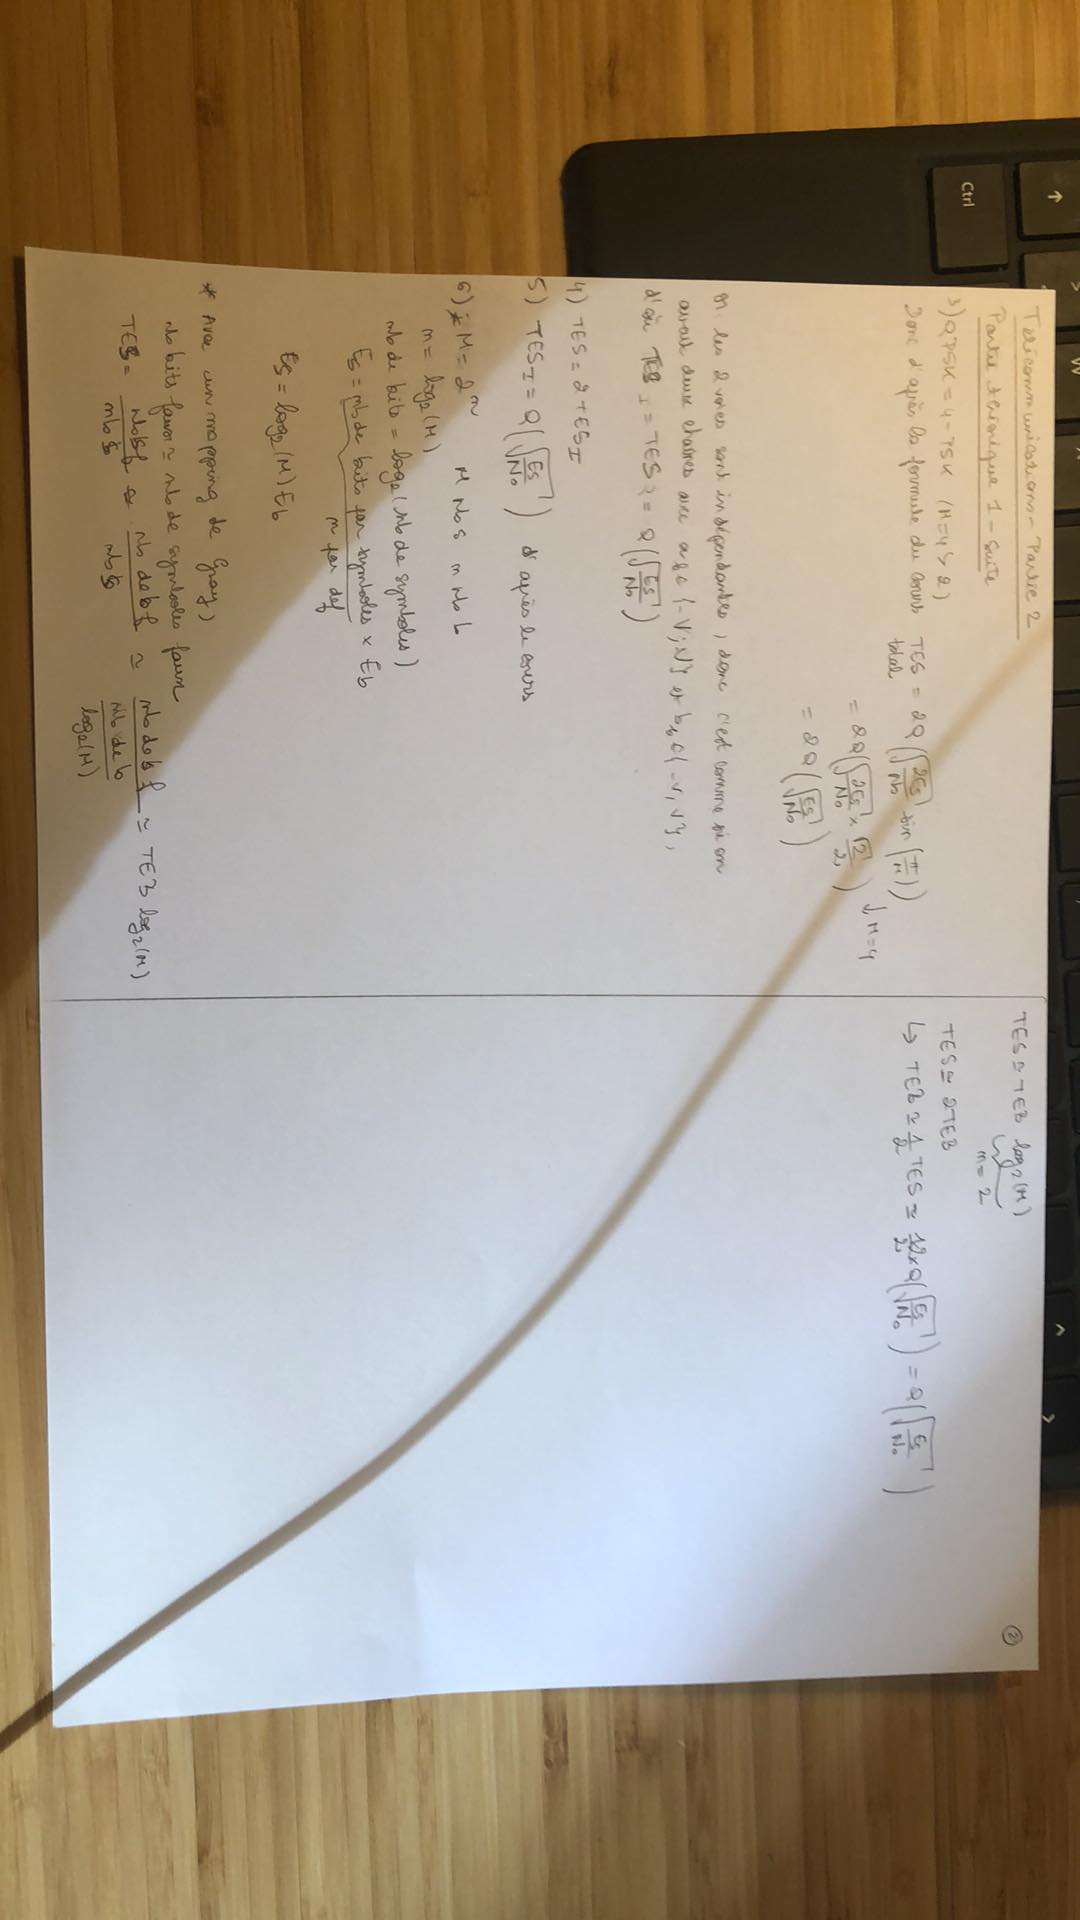 Télécommunications - Partie 2
Partie théorique 1 - Suite
3) QPSK = 4-PSK (M=4>2)
Donc d'après la formule du cours TES total = 2Q(√(2Es/N₀) sin(π/M))
= 2Q(√(2Es/N₀) × √2/2) ↓ M=4
= 2Q(√(Es/N₀))
les 2 voies sont indépendantes, donc c'est comme si on
avait deux chaînes avec aₖ∈{-V;V} et bₖ∈{-V,V},
d'où TES I = TES Q = Q(√(Es/N₀))
4) TES = 2TES I
5) TES I = Q(√(Es/N₀)) d'après le cours
6) * M = 2ⁿ M Nb s n Nb b
n = log₂(M)
nb de bits = log₂(nb de symboles)
Es = nb de bits par symboles × Eb
n par def
Es = log₂(M) Eb
* Avec un mapping de Gray,
nb bits faux ≃ nb de symboles faux
TES = nb s f / nb s ≃ nb de b f / nb s ≃ nb de b f / (nb de b / log₂(M)) ≃ TEB log₂(M)
TES ≃ TEB log₂(M)
n = 2
TES ≃ 2TEB
↳ TEB ≃ 1/2 TES ≃ 1/2 × 2 × Q(√(Es/N₀)) = Q(√(Es/N₀))
②
Ctrl